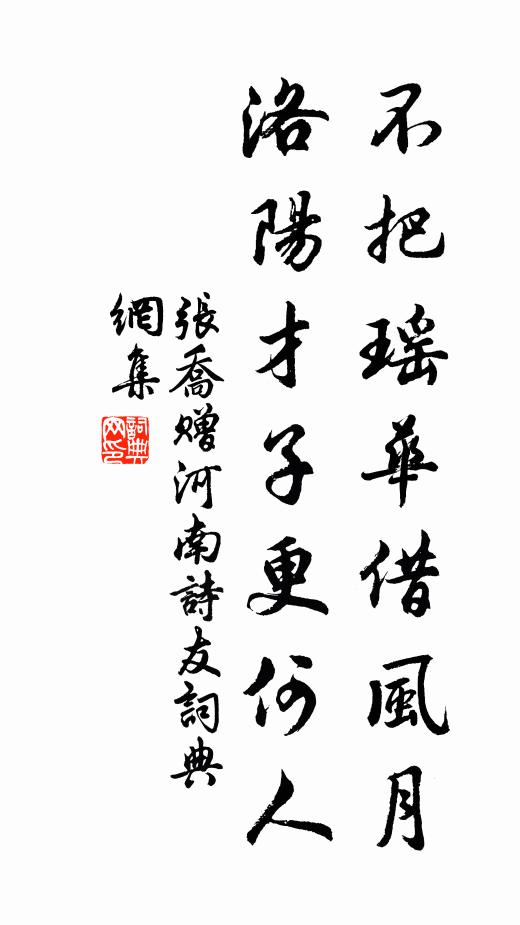 不把瑶華借風月
洛陽才子更何人
張喬赠河南詩友詞典
網集
詞典
网印